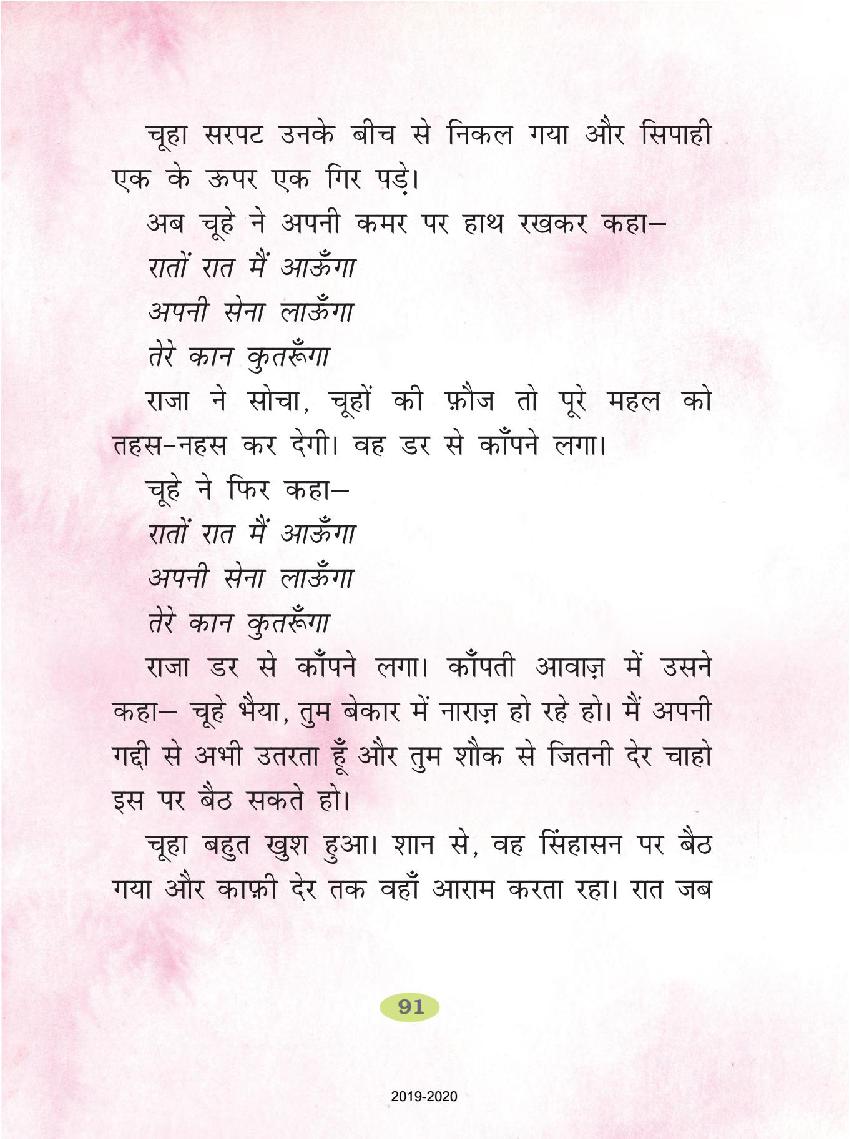 चूहा सरपट उनके बीच से निकल गया और सिपाही
एक के ऊपर एक गिर पड़े।
अब चूहे ने अपनी कमर पर हाथ रखकर कहा–
रातों रात मैं आऊँगा
अपनी सेना लाऊँगा
तेरे कान कुतरूँगा
राजा ने सोचा, चूहों की फ़ौज तो पूरे महल को
तहस-नहस कर देगी। वह डर से काँपने लगा।
चूहे ने फिर कहा–
रातों रात मैं आऊँगा
अपनी सेना लाऊँगा
तेरे कान कुतरूँगा
राजा डर से काँपने लगा। काँपती आवाज़ में उसने
कहा– चूहे भैया, तुम बेकार में नाराज़ हो रहे हो। मैं अपनी
गद्दी से अभी उतरता हूँ और तुम शौक से जितनी देर चाहो
इस पर बैठ सकते हो।
चूहा बहुत खुश हुआ। शान से, वह सिंहासन पर बैठ
गया और काफ़ी देर तक वहाँ आराम करता रहा। रात जब
91
2019-2020